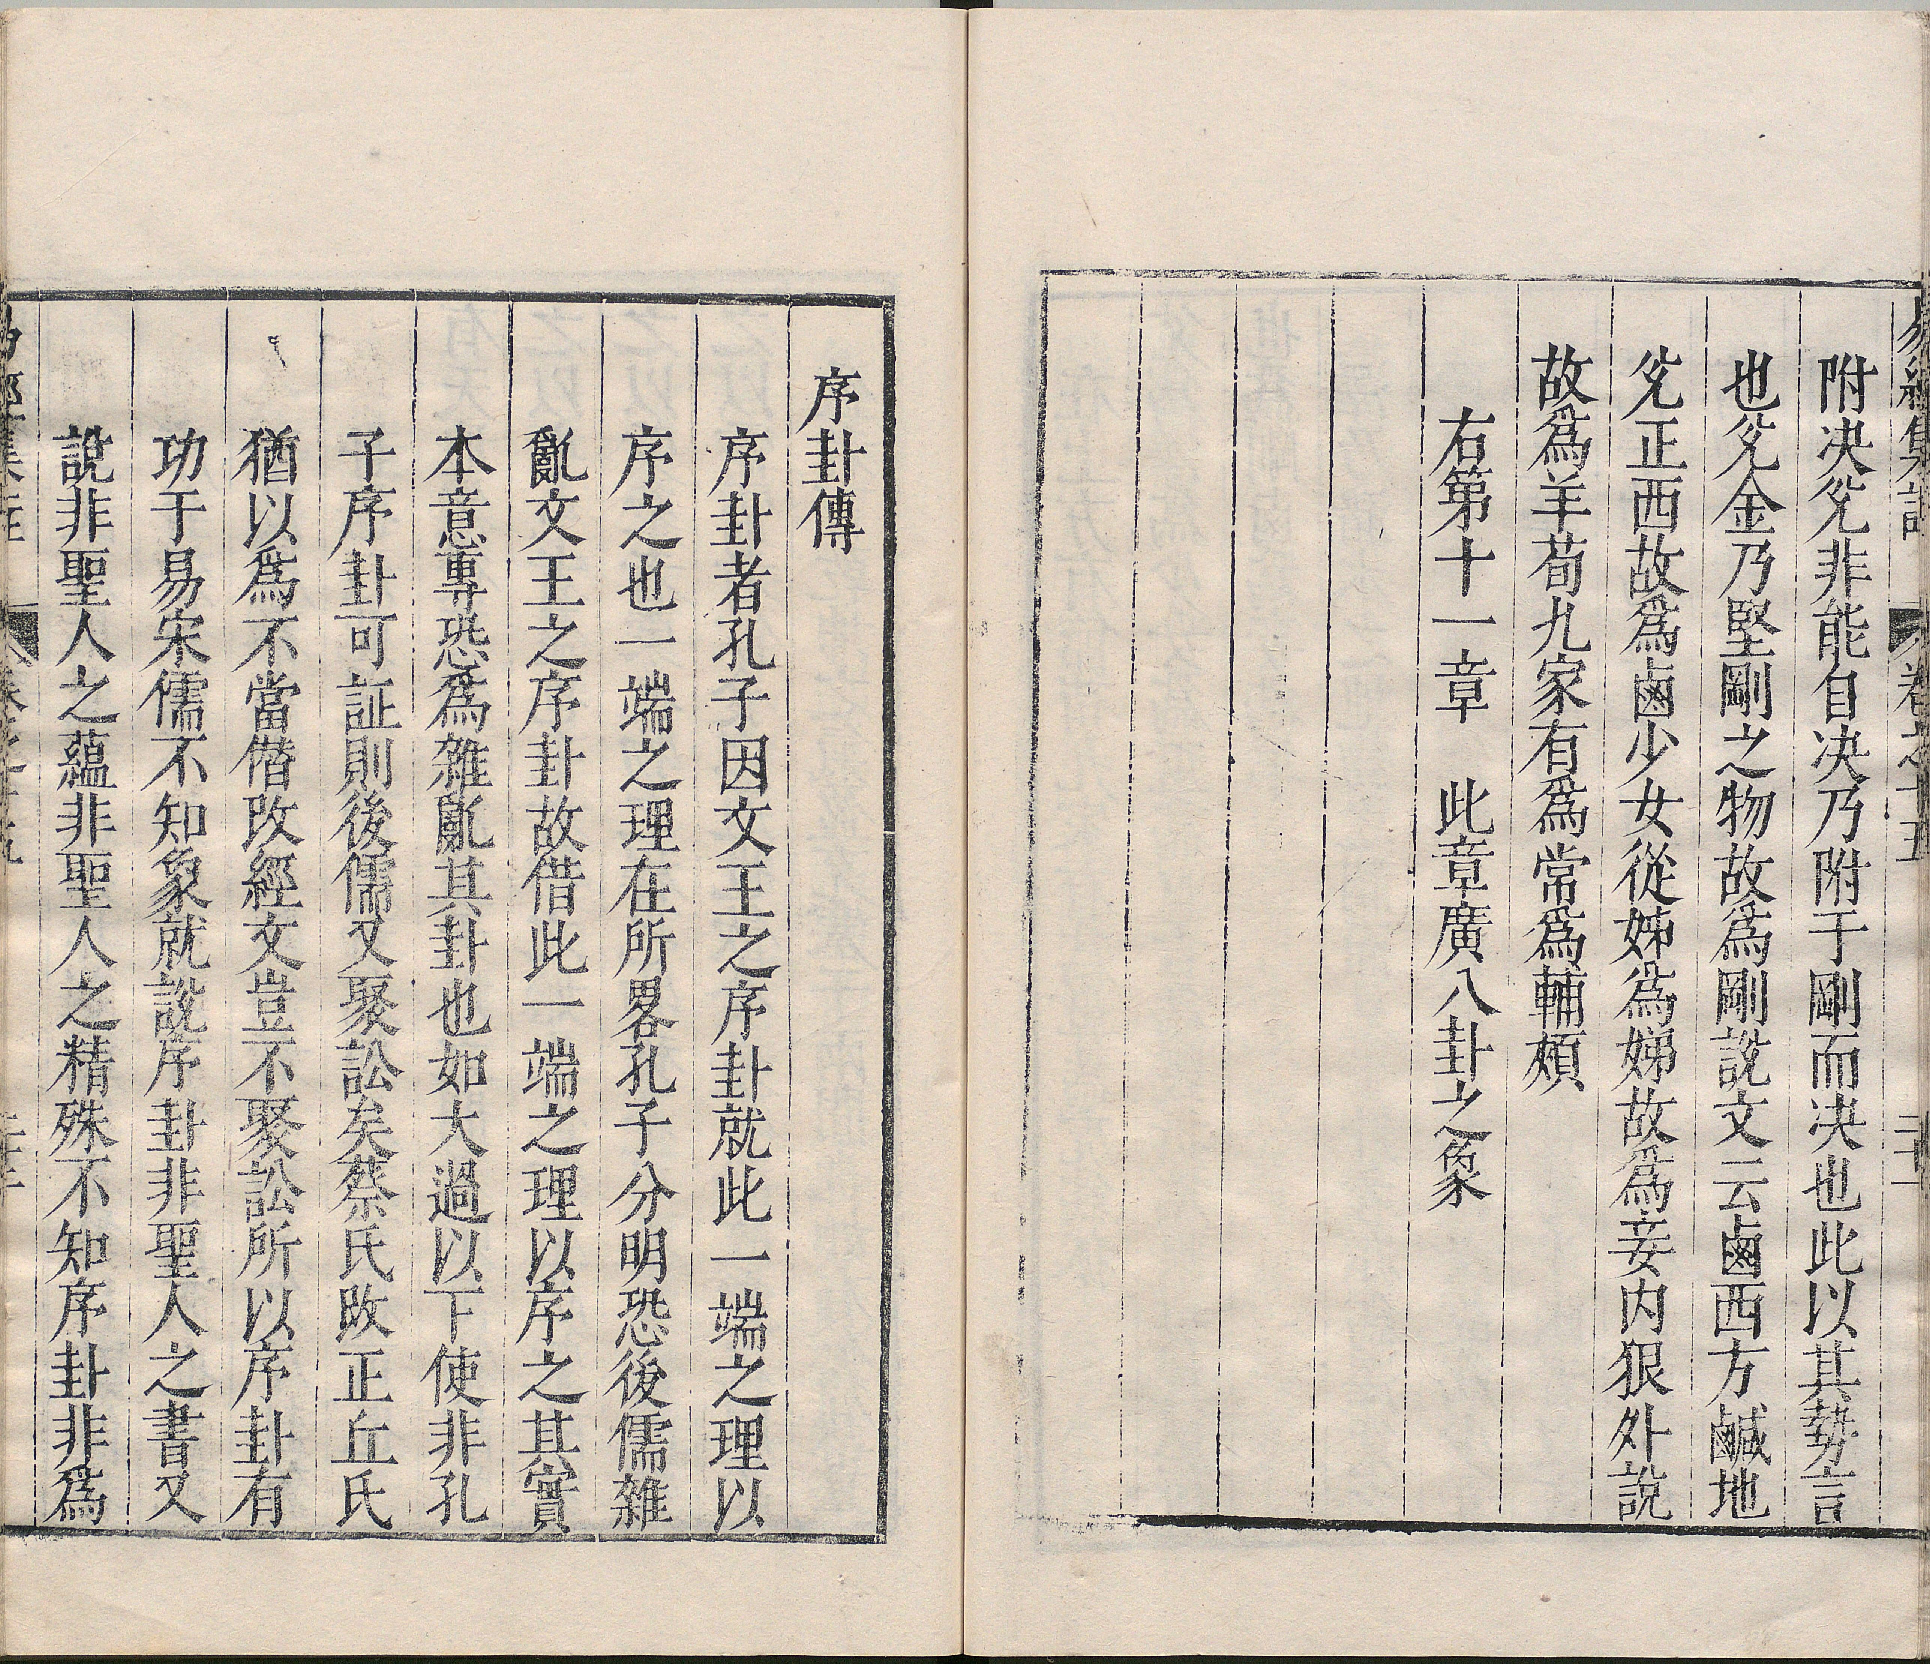 易經集註 卷之十五 二十一
附决兊非能自决乃附于剛而决也此以其勢言
也兊金乃堅剛之物故爲剛説文云鹵西方鹹地
兊正西故爲鹵少女從姊爲娣故爲妾内狠外說
故爲羊荀九家有爲常爲輔頰
右第十一章 此章廣八卦之象
序卦傳
序卦者孔子因文王之序卦就此一端之理以
序之也一端之理在所畧孔子分明恐後儒雜
亂文王之序卦故借此一端之理以序之其實
本意專恐爲雜亂其卦也如大過以下使非孔
子序卦可証則後儒又聚訟矣蔡氏改正丘氏
猶以爲不當僭改經文豈不聚訟所以序卦有
功于易宋儒不知象就說序卦非聖人之書又
說非聖人之蘊非聖人之精殊不知序卦非爲